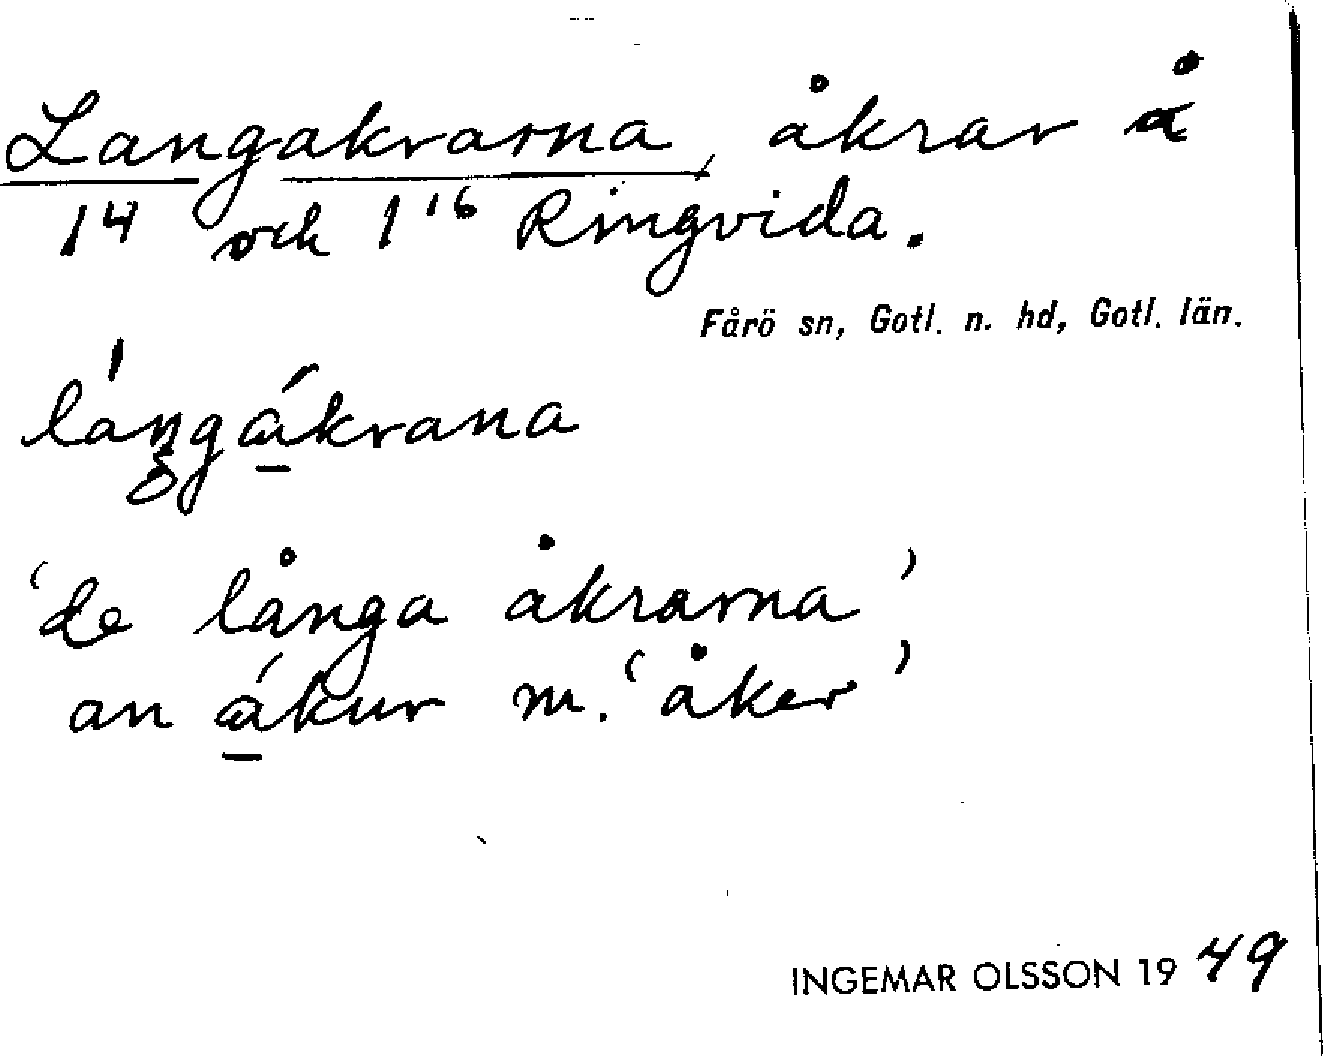 Langakrarna, åkrar å
1⁴ och 1¹⁶ Ringvida.
Fårö sn, Gotl. n. hd, Gotl. län.
láŋgákrana
'de långa åkrarna'
an ákur m. 'åker'
INGEMAR OLSSON 1949